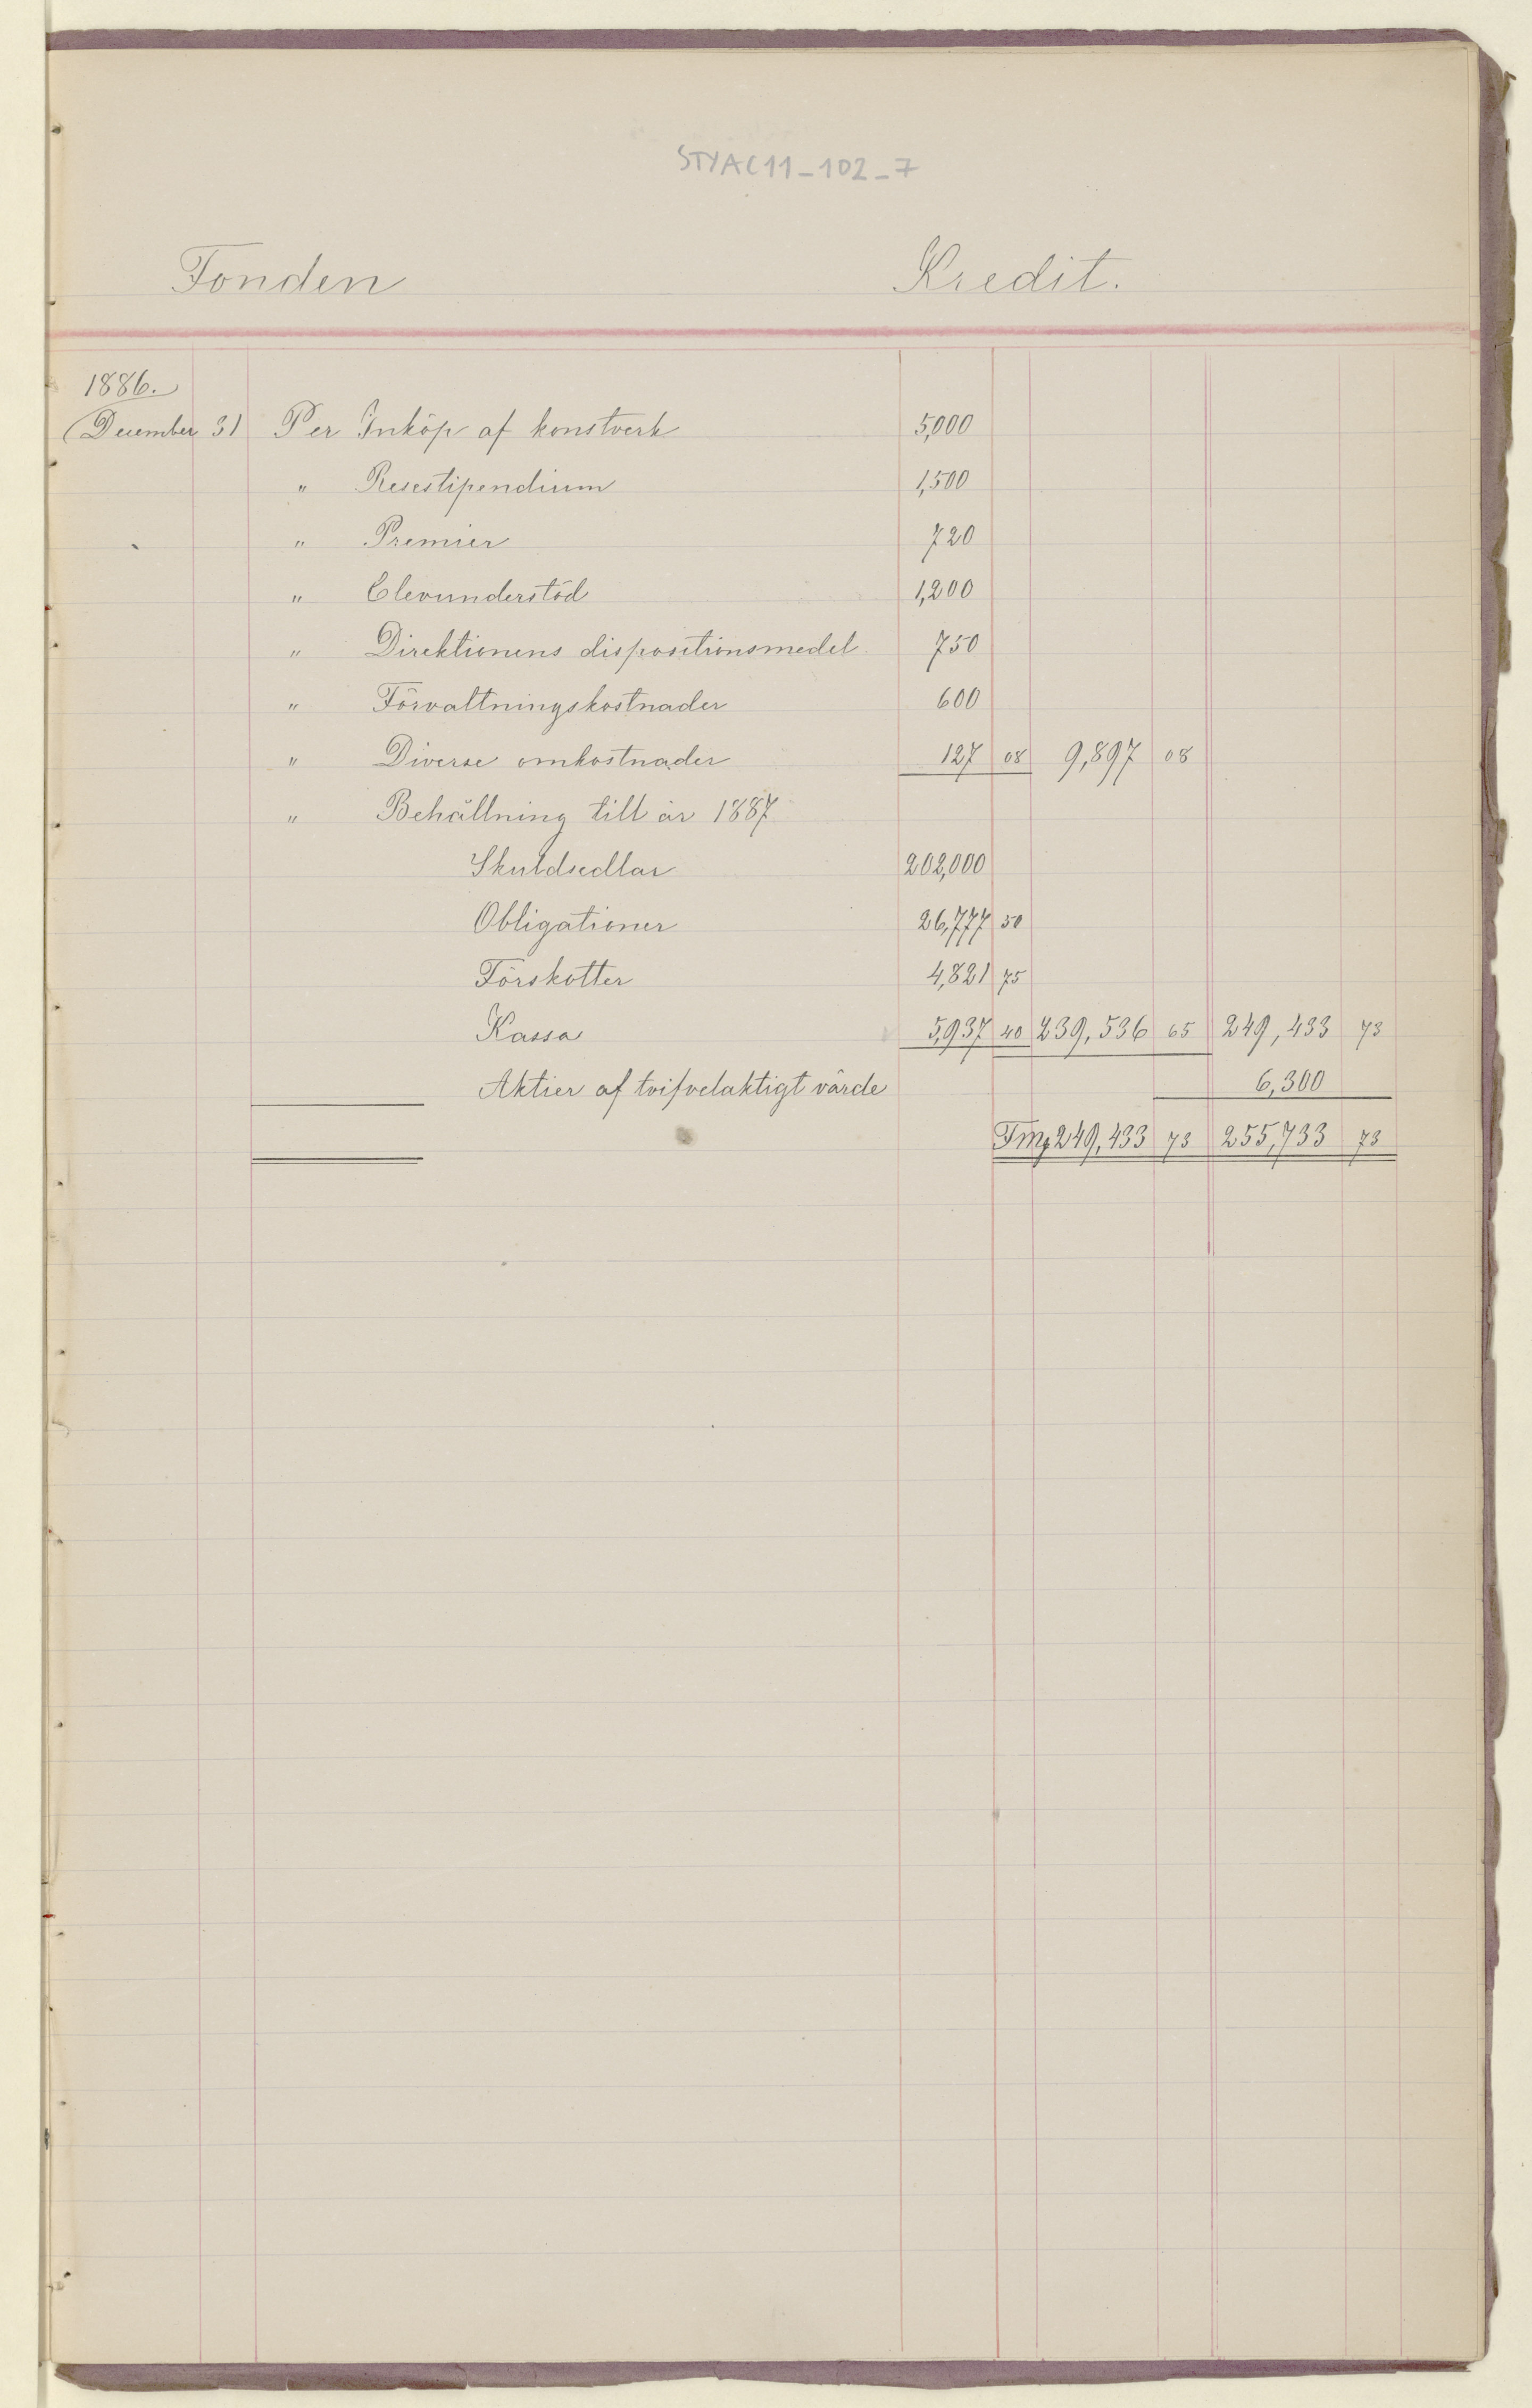 STYAC11_102_7
Fonden Kredit.
1886.
December 31 Per Inköp af konstverk 5,000
" Resestipendium 1,500
" Premier 720
" Elevunderstöd 1,200
" Direktionens dispositionsmedel 750
" Förvaltningskostnader 600
" Diverse omkostnader 127 08 9,897 08
" Behållning till år 1887
Skuldsedlar 202,000
Obligationer 26,777 50
Förskotter 4,821 75
Kassa 5,937 40 239,536 65 249,433 73
Aktier af tvifvelaktigt värde 6,300
Fmg 249,433 73 255,733 73